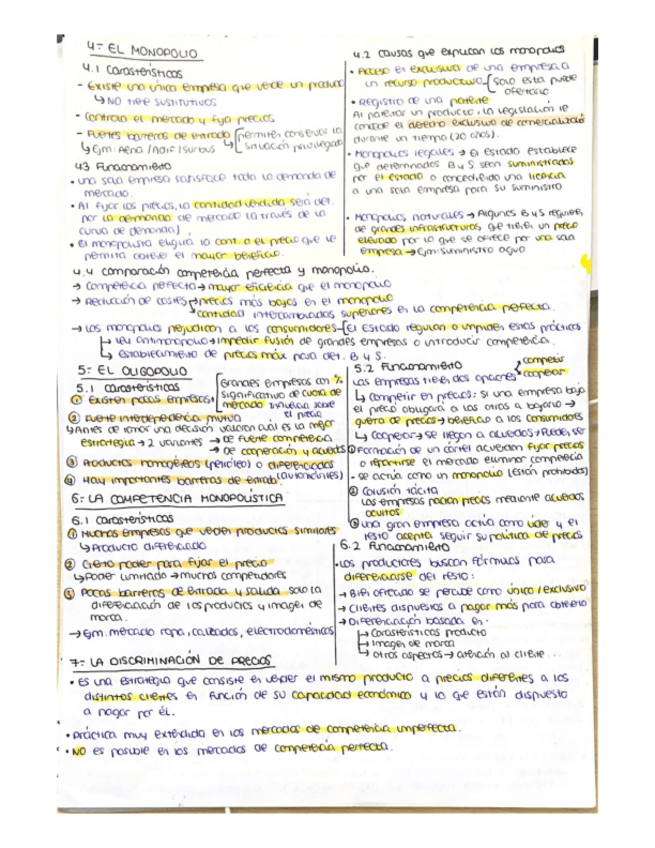 4- EL MONOPOLIO
4.1 Características
- Existe una única empresa que vende un producto
↳ NO tiene sustitutivos
- Controla el mercado y fija precios
- Fuertes barreras de entrada [permiten conservar la
situación privilegiada
↳ Ejm: Aena / Adif / Sursous
4.3 Funcionamiento
• una sola empresa satisface toda la demanda de
mercado.
• Al fijar los precios, la cantidad vendida será det.
por la demanda de mercado (a través de la
curva de demanda).
• El monopolista elegirá la cant. o el precio que le
permita obtener el mayor beneficio.
4.2 Causas que explican los monopolios
• Acceso en exclusiva de una empresa a
un recurso productivo - [solo esta puede
ofertarlo
• Registro de una patente
Al patentar un producto, la legislación le
concede el derecho exclusivo de comercializarlo
durante un tiempo (20 años).
• Monopolios legales → el estado establece
que determinados B y S sean suministrados
por el estado o concediendo una licencia
a una sola empresa para su suministro
• Monopolios naturales → Algunos B y S requieren
de grandes infraestructuras que tienen un precio
elevado por lo que se ofrece por una sola
empresa → Ejm: suministro agua
4.4 comparación competencia perfecta y monopolio.
→ Competencia perfecta → mayor eficiencia que el monopolio
→ Reducción de costes → precios más bajos en el monopolio
→ cantidad intercambiados superiores en la competencia perfecta.
→ Los monopolios perjudican a los consumidores - [El estado regulan o impiden estas prácticas
↳ Ley antimonopolio → impedir fusión de grandes empresas o introducir competencia.
↳ establecimiento de precios máx para det. B y S.
5- EL OLIGOPOLIO
5.1 Características
① Existen pocas empresas → [Grandes empresas con %
significativo de cuota de
mercado influyen sobre
el precio
② Fuerte interdependencia mutua
↳ Antes de tomar una decisión valoran cuál es la mejor
estrategia → 2 variantes → De fuerte competencia
→ De cooperación y acuerdos
③ Productos homogéneos (petróleo) o diferenciados
(automóviles)
④ Hay importantes barreras de entrada
5.2 Funcionamiento
Las empresas tienen dos opciones → competir
→ cooperar
↳ Competir en precios: si una empresa baja
el precio obligará a las otras a bajarlo →
guerra de precios → beneficio a los consumidores
↳ Cooperar → se llegan a acuerdos → Pueden ser
① Formación de un cártel acuerdan fijar precios
o repartirse el mercado eliminar competencia
- se actúa como un monopolio (están prohibidos)
② Colusión tácita
Las empresas pactan precios mediante acuerdos
ocultos
③ una gran empresa actúa como líder y el
resto acepta seguir su política de precios
6- LA COMPETENCIA MONOPOLÍSTICA
6.1 Características
① Muchas empresas que venden productos similares
↳ Producto diferenciado
② Cierto poder para fijar el precio
↳ Poder limitado → muchos competidores
③ Pocas barreras de entrada y salida solo la
diferenciación de los productos y imagen de
marca.
→ Ejm: mercado ropa, calzados, electrodomésticos
6.2 Funcionamiento
• Los productores buscan fórmulas para
diferenciarse del resto:
→ Bien ofrecido se percibe como único/exclusivo
→ Clientes dispuestos a pagar más para obtenerlo
→ Diferenciación basada en:
↳ Características producto
↳ Imagen de marca
↳ otros aspectos → atención al cliente...
7- LA DISCRIMINACIÓN DE PRECIOS
• es una estrategia que consiste en vender el mismo producto a precios diferentes a los
distintos clientes en función de su capacidad económica y lo que están dispuesto
a pagar por él.
• práctica muy extendida en los mercados de competencia imperfecta.
• NO es posible en los mercados de competencia perfecta.